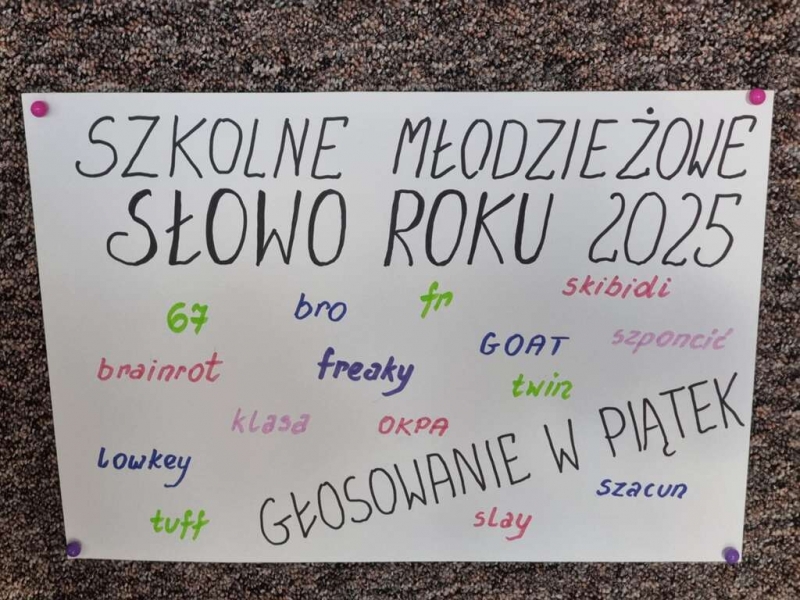 SZKOLNE MŁODZIEŻOWE
SŁOWO ROKU 2025
67 bro fr skibidi
GOAT szponcić
brainrot freaky twin
klasa OKPA
lowkey GŁOSOWANIE W PIĄTEK
szacun
tuff slay